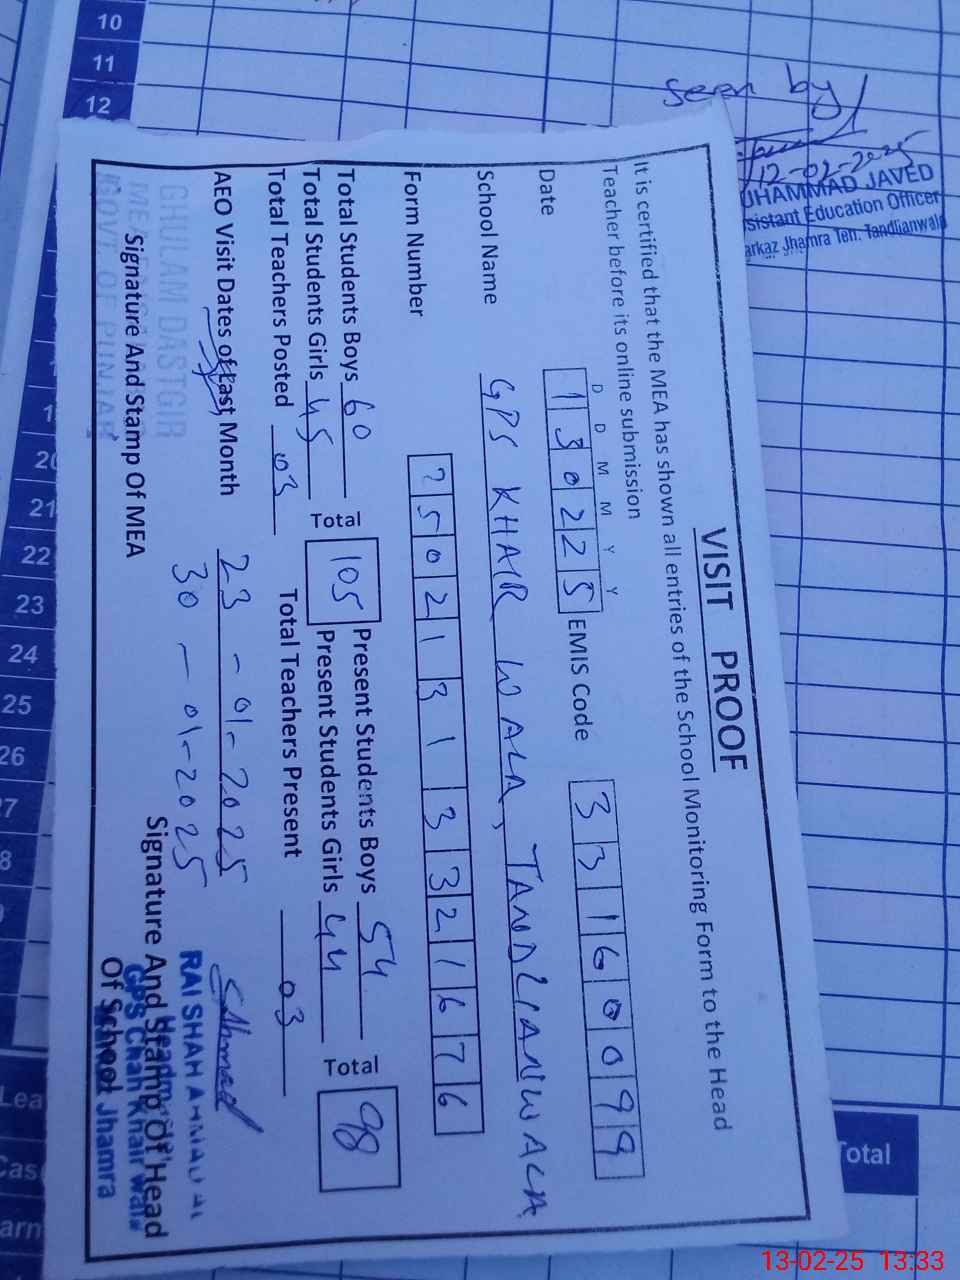 10
11
12
seen by
12-02-2025
UHAMMAD JAVED
sistant Education Officer
arkaz Jhamra Teh. Tandlianwala
VISIT PROOF
It is certified that the MEA has shown all entries of the School Monitoring Form to the Head
Teacher before its online submission
D D M M Y Y
Date 1 3 0 2 2 5 EMIS Code 3 3 1 6 0 0 9 9
School Name GPS KHAIR WALA, TANDLIANWALA
Form Number 2 5 0 2 1 3 1 3 3 2 1 6 7 6
Total Students Boys 60 Total 105 Present Students Boys 54 Total 98
Total Students Girls 45 Present Students Girls 44
Total Teachers Posted 03 Total Teachers Present 03
AEO Visit Dates of Last Month 23-01-2025
30-01-2025
GHULAM DASTGIR
GOVT. OF PUNJAB
Signature And Stamp Of MEA
SAhmad
RAI SHAH AHMAD
GPS Chah Khair wala
Jhamra
Signature And Stamp Of Head
Of School
20
21
22
23
24
25
26
Total
13-02-25 13:33